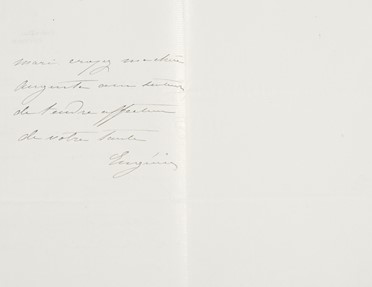 mari croyez ma chère
Augusta aux sentiments
de tendre affection
de votre tante
Eugénie